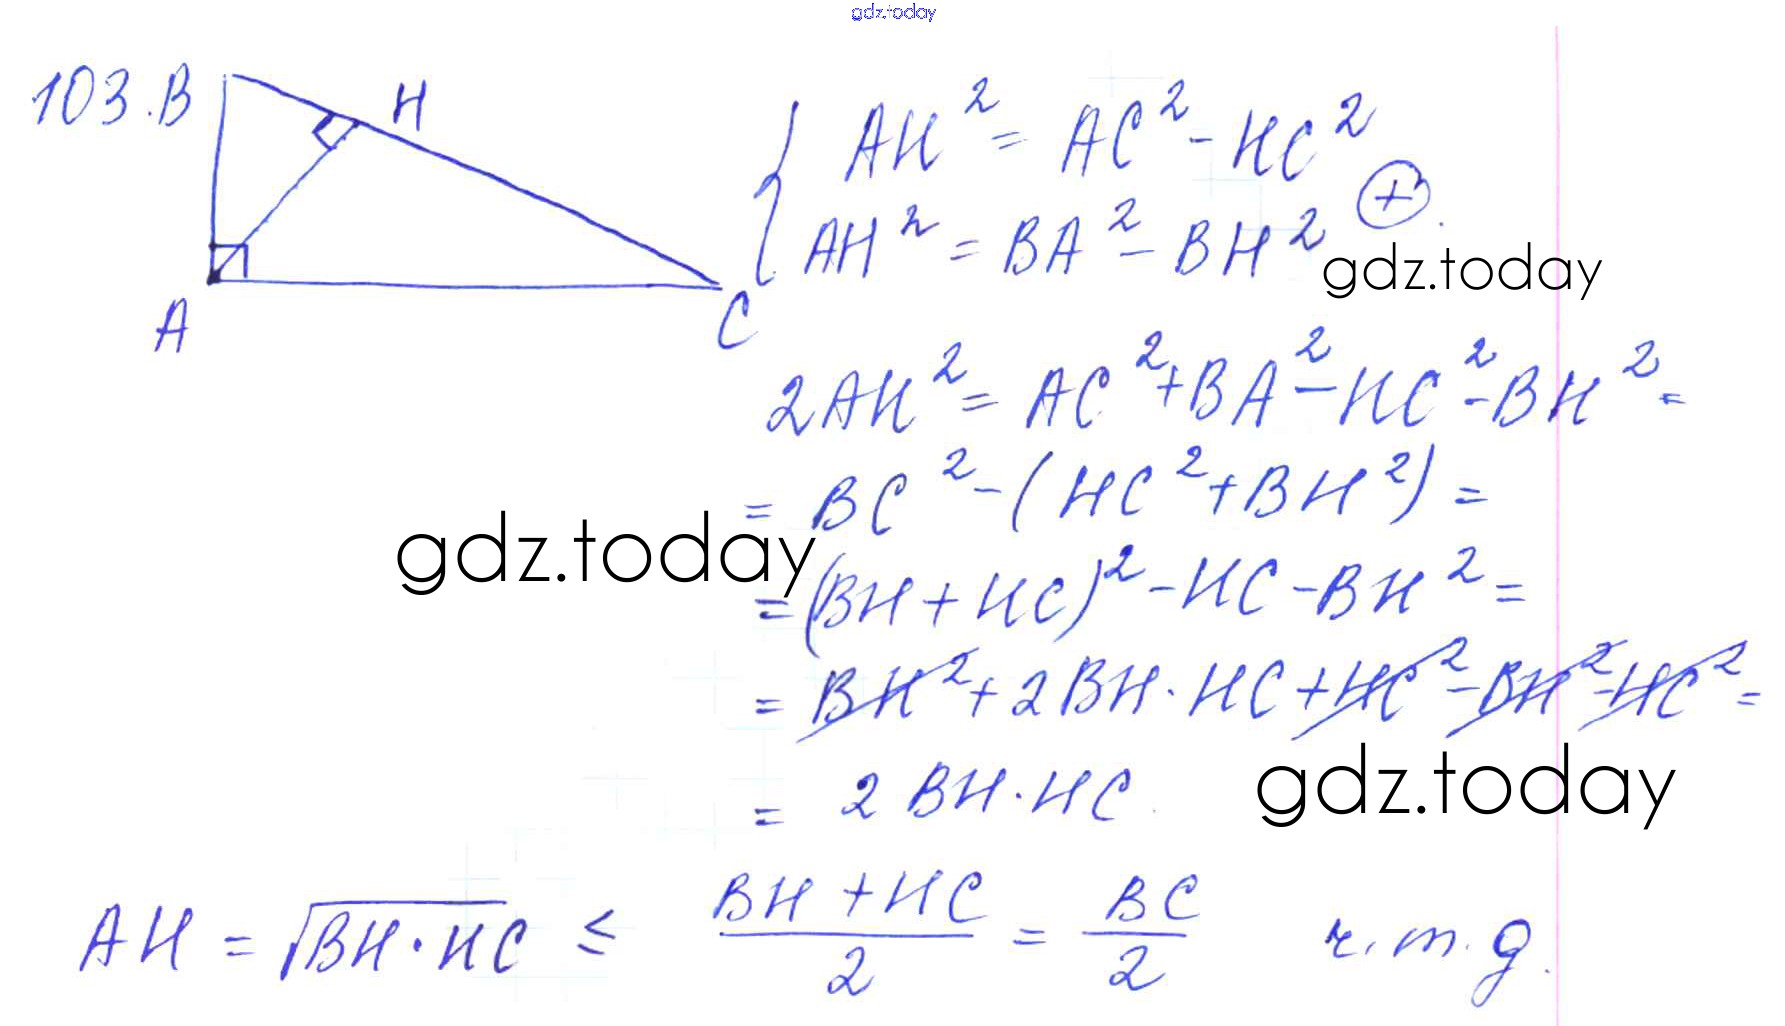 gdz.today
103. B H
A C
AH² = AC² - HC²
AH² = BA² - BH² +
gdz.today
2AH² = AC² + BA² - HC² - BH² =
= BC² - (HC² + BH²) =
gdz.today
= (BH + HC)² - HC - BH² =
= BH² + 2BH · HC + HC² - BH² - HC² =
gdz.today
= 2 BH · HC.
AH = √BH · HC ≤ (BH + HC)/2 = BC/2 ч.т.д.